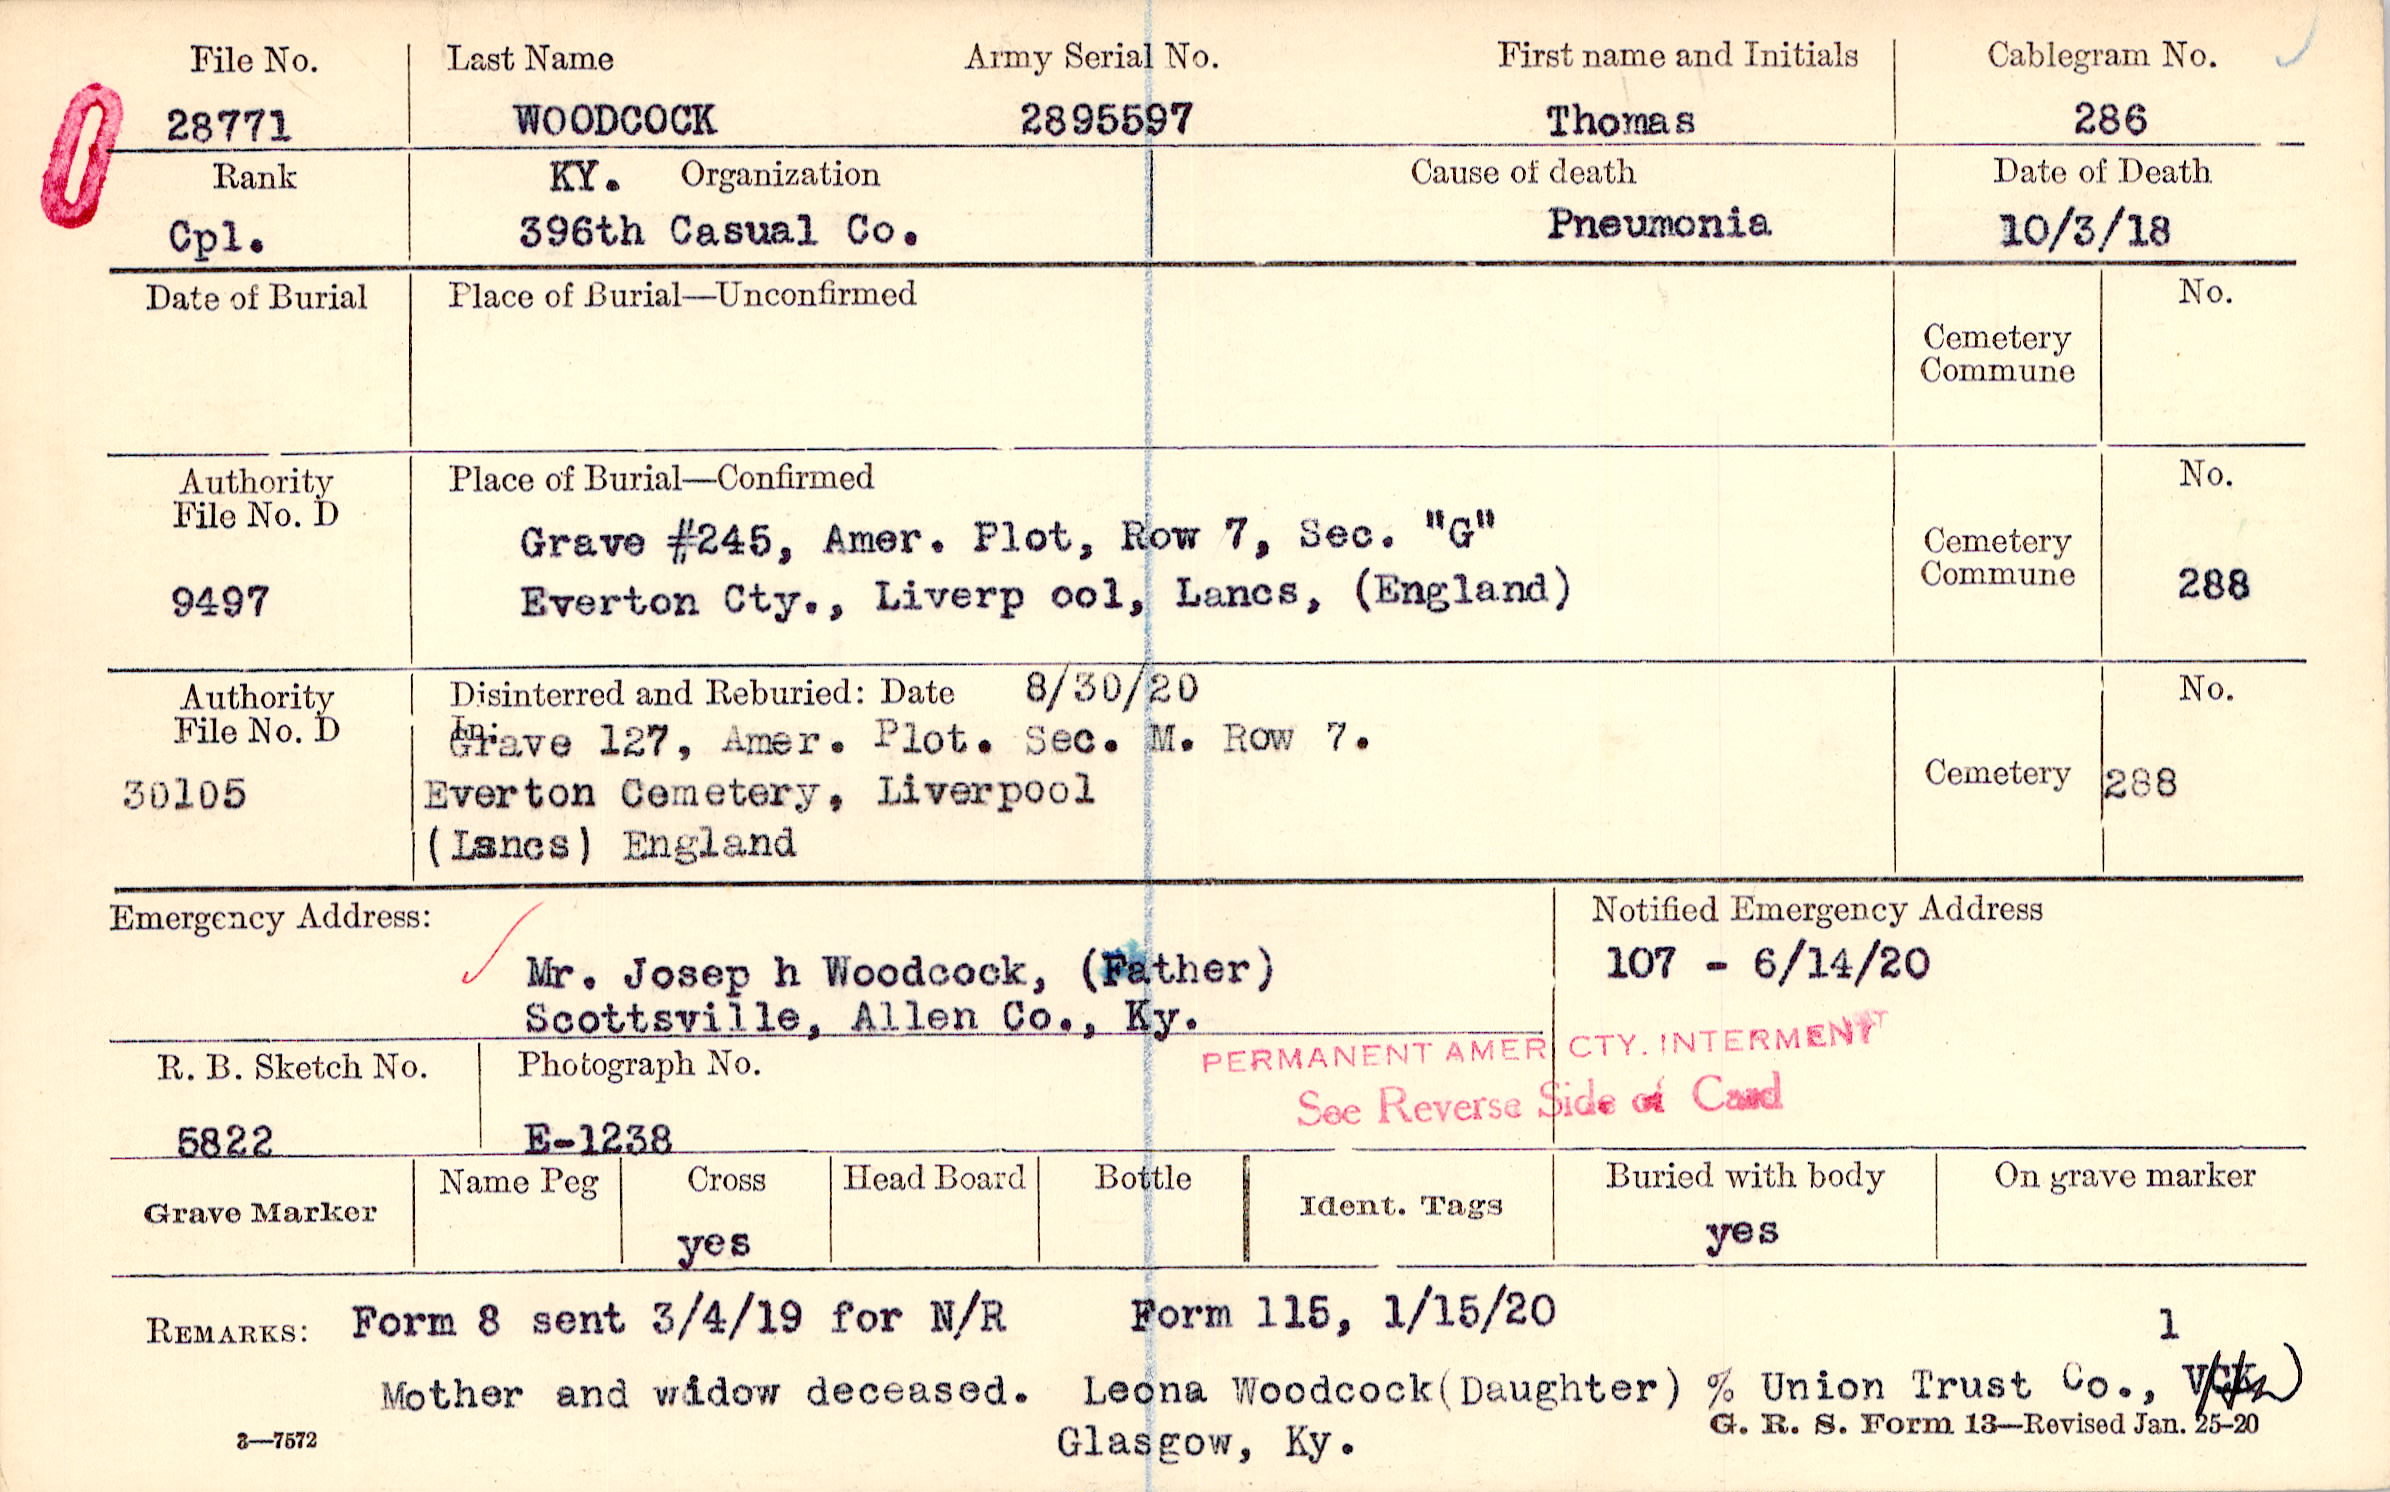 File No. Last Name Army Serial No. First name and Initials Cablegram No.
28771 WOODCOCK 2895597 Thomas 286
Rank KY. Organization Cause of death Date of Death
Cpl. 396th Casual Co. Pneumonia 10/3/18
Date of Burial Place of Burial—Unconfirmed No.
Cemetery
Commune
Authority Place of Burial—Confirmed No.
File No. D
Grave #245, Amer. Plot, Row 7, Sec. "G" Cemetery
9497 Everton Cty., Liverp ool, Lancs, (England) Commune 288
Authority Disinterred and Reburied: Date 8/30/20 No.
File No. D In:
Grave 127, Amer. Plot. Sec. M. Row 7.
30105 Everton Cemetery, Liverpool Cemetery 288
(Lancs) England
Emergency Address: Notified Emergency Address
Mr. Josep h Woodcock, (Father) 107 - 6/14/20
Scottsville, Allen Co., Ky.
PERMANENT AMER CTY. INTERMENT
R. B. Sketch No. Photograph No.
See Reverse Side of Card
5822 E-1238
Grave Marker Name Peg Cross Head Board Bottle Ident. Tags Buried with body On grave marker
yes yes
REMARKS: Form 8 sent 3/4/19 for N/R Form 115, 1/15/20 1
Mother and widow deceased. Leona Woodcock(Daughter) % Union Trust Co.,
Glasgow, Ky.
3—7572 G. R. S. Form 13—Revised Jan. 25-20